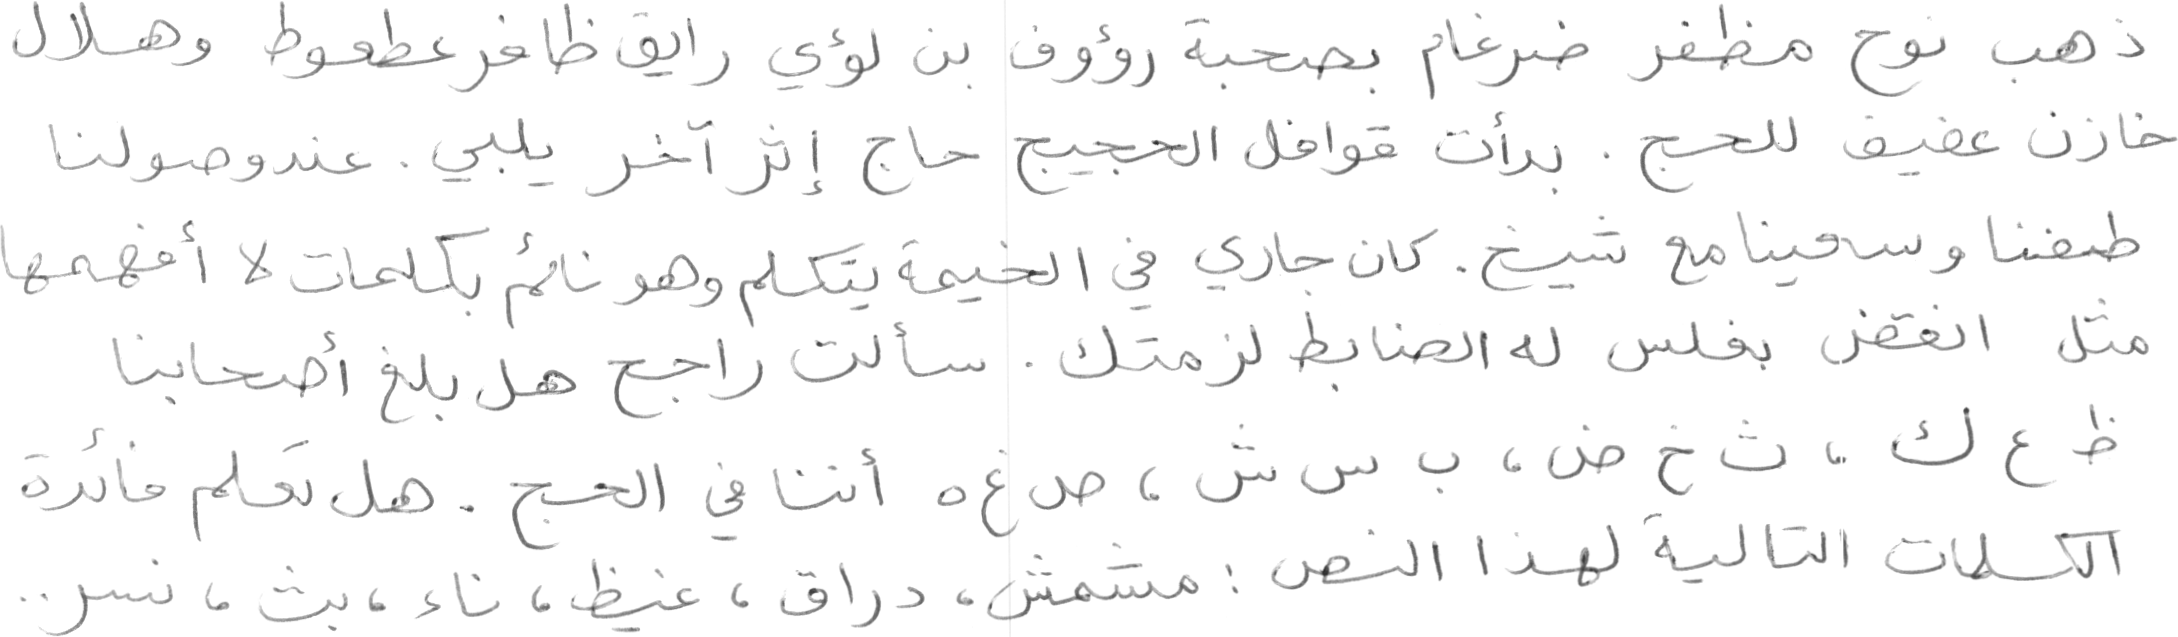 ذهب نوح مظفر ضرغام بصحبة رؤوف بن لؤي رايق ظافر عطعوط وهلال
خازن عفيف للحج. بدأت قوافل الحجيج حاج إثر آخر يلبي. عند وصولنا
طفنا وسعينا مع شيخ. كان جاري في الخيمة يتكلم وهو نائم بكلمات لا أفهمها
مثل انغقض بغلس له الضابط لزمتك. سألت راجح هل بلغ أصحابنا
ظ ع ك، ث خ ض، ب س ش، ص غ ه أننا في الحج. هل تعلم فائدة
الكلمات التالية لهذا النص: مشمش، دراق، غيظ، ناء، بث، نسر..